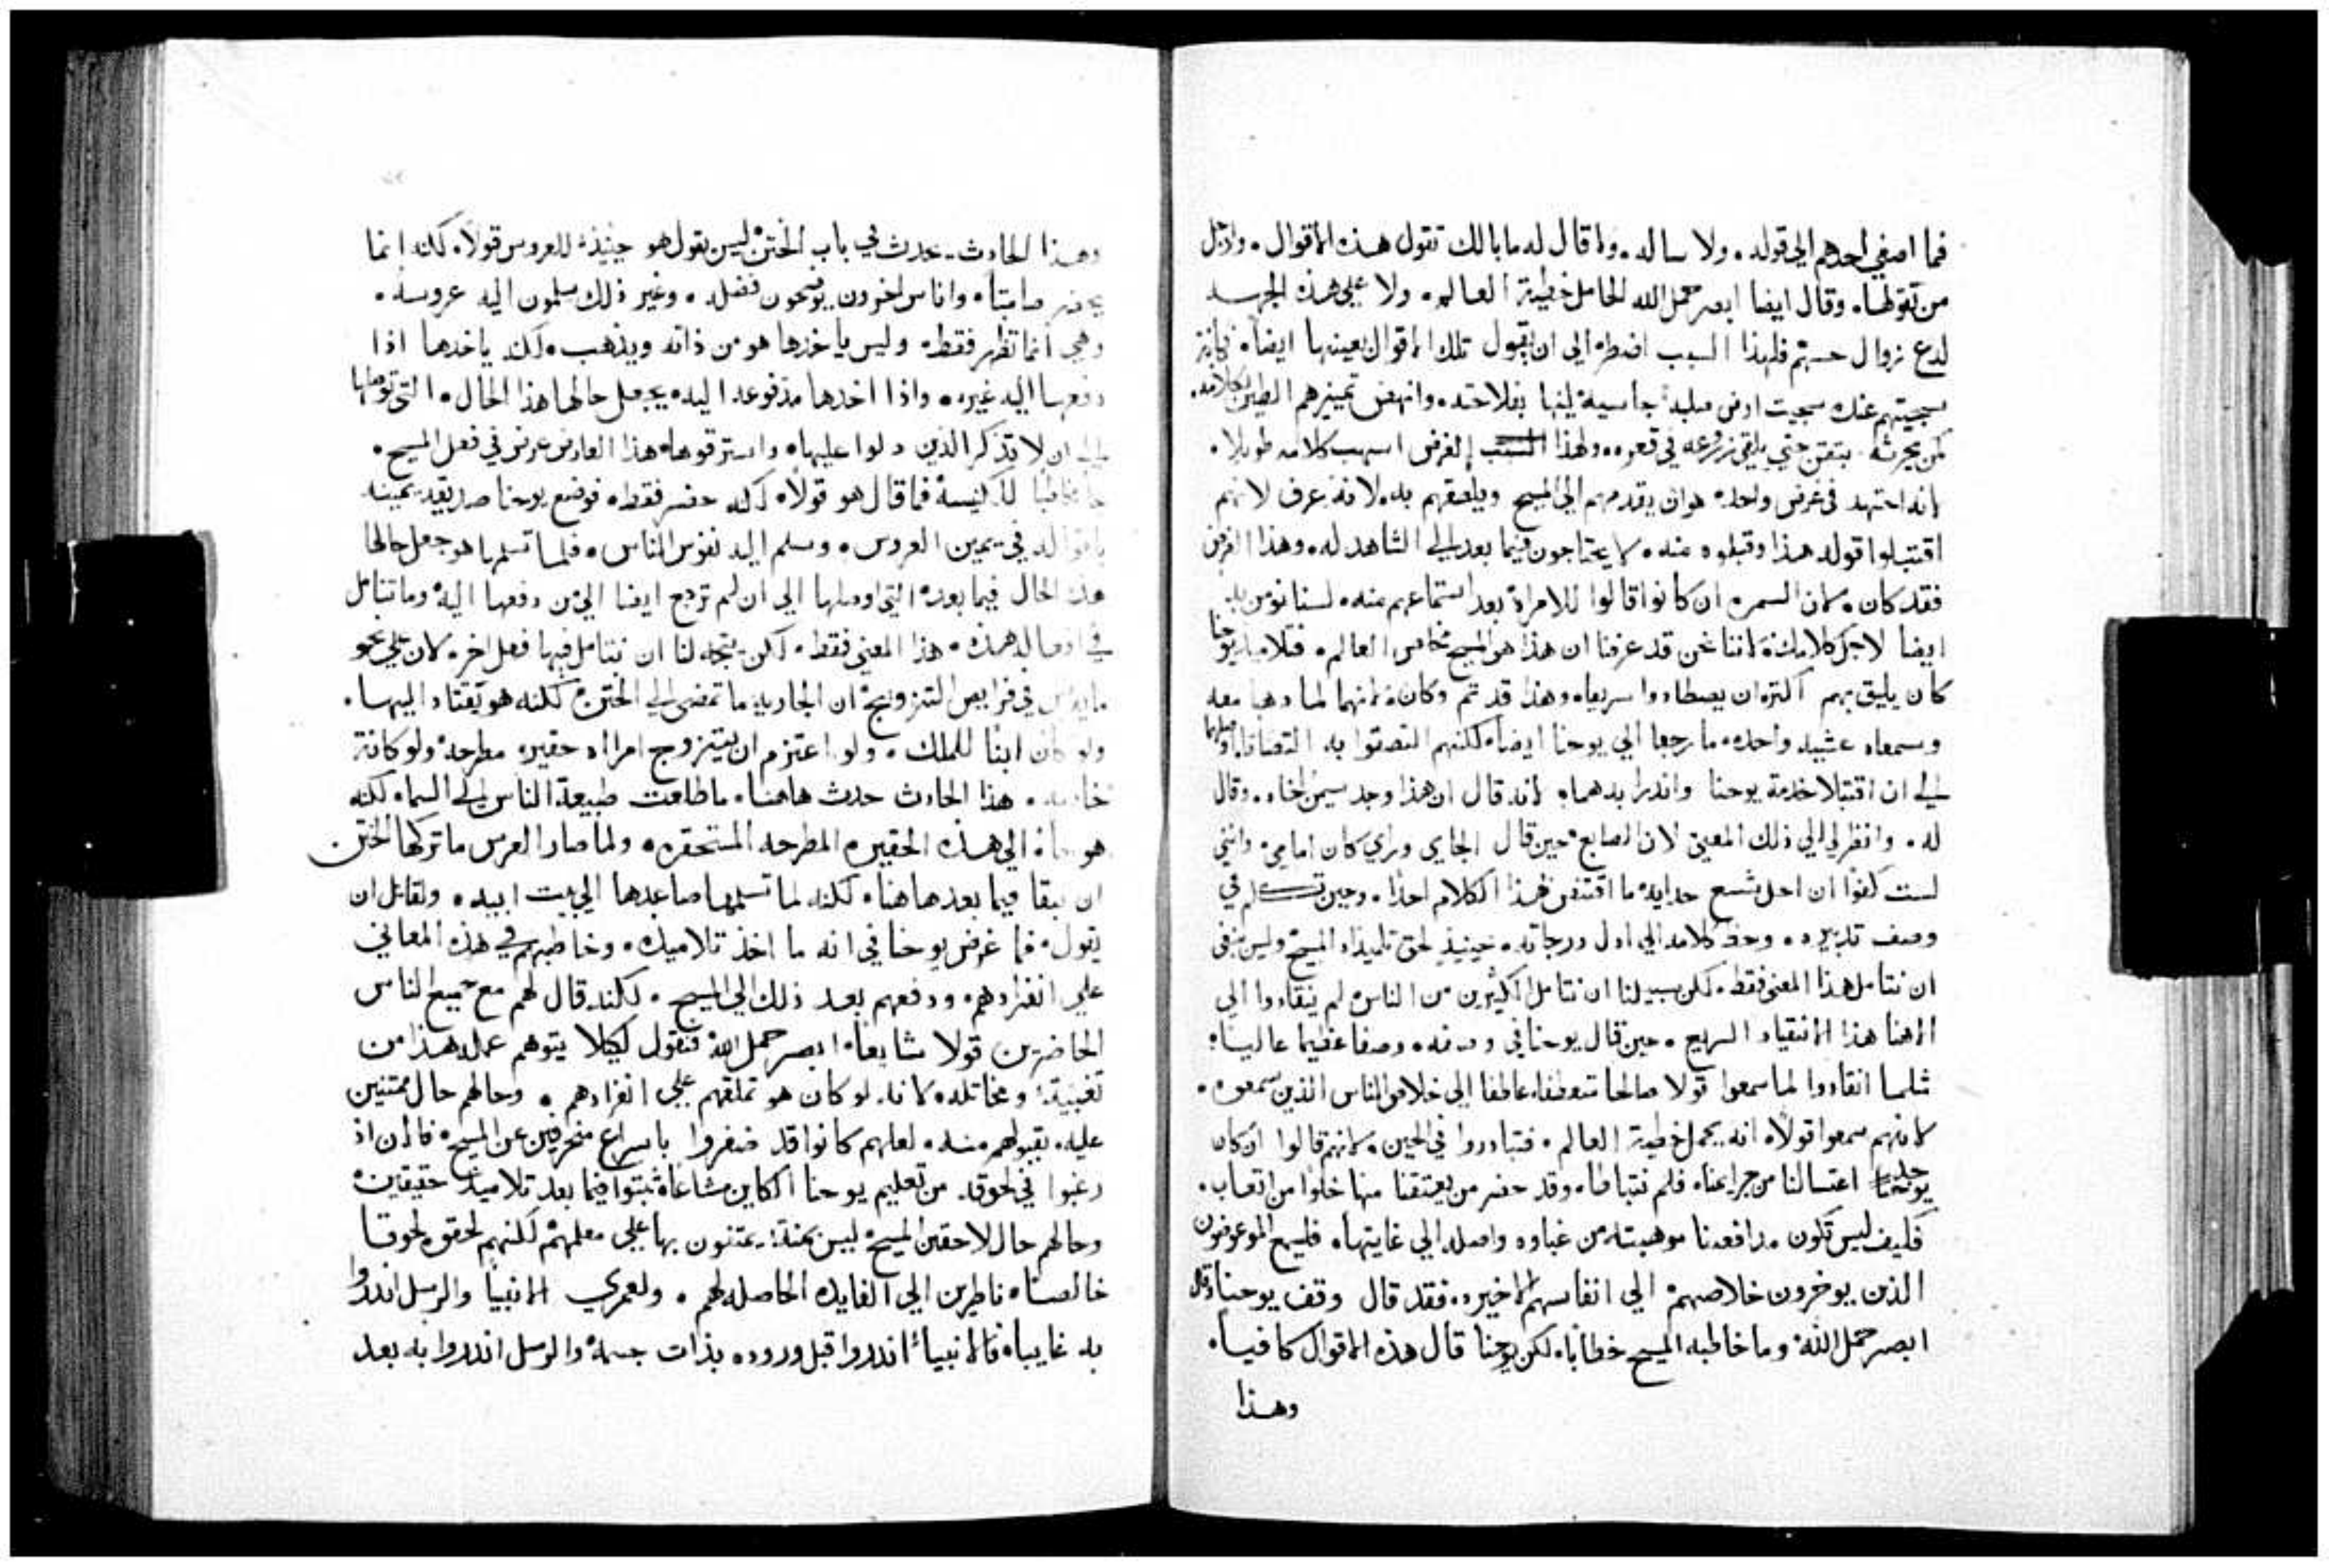 فما اصغي احدهم الي قوله. ولا ساله. ولا قال له ما بالك تقول هذه الاقوال. ولاجل
من تقولها. وقال ايضا ابصر حمل الله الحامل خطية العالم. ولا علي هذه الجهه
لدع زوال حسهم فلهذا السبب اضطر الي ان يقول تلك الاقوال بعينها ايضا. كانه
سجيتهم عنك سجيت ارض صلبة جاسية لينها بفلاحته. وانهض تمييزهم بكلامه.
كمن يحرثه حتي يلقي زرعه في قعره. ولهذا الغرض اسهب كلامه طويلا.
لانه اجتهد في غرض واحد. هو ان يقدمهم الي المسيح ويلصقهم به. لانه عرف لانهم
اقتبلوا قوله هذا وقبلوه منه. لا يحتاجون فيما بعد الي الشاهد له. وهذا الغرض
فقد كان. لان السمره ان كانوا قالوا للامراة بعد استماعهم منه. لسنا نومن به
ايضا لاجل كلامك. لاننا نحن قد عرفنا ان هذا هو المسيح مخلص العالم. فتلاميذ يوحنا
كان يليق بهم اكثر ان يصطادوا سريعا. وهذا قد تم وكان. لانهما لما ذهبا معه
وسمعاه عشيه واحده. ما رجعا الي يوحنا ايضا. لكنهم التصقوا به التصاقا. اوصلهما
الي ان اقتبلا خدمة يوحنا وانذرا بدهما. لانه قال ان هذا وجد سيمن اخاه. وقال
له. وانظر لي الي ذلك المعني لان الصابغ حين قال الجاي وراي كان امامي. وانني
لست كفوا ان احل شسع حدايه ما اقتنص بهذا الكلام احدا. وحين تكلم في
وصف تدبيره. وحط كلامه الي اول درجاته. حينيذ لحق تلميذاه المسيح وليس ينبغي
ان نتامل هذا المعني فقط. لكن سبيلنا ان نتامل الكثيرين من الناس لم ينقادوا الي
الاهنا هذا الانقياد السريع. حين قال يوحنا في وصفه. وصفا عظيما عاليا.
مثلما انقادوا لما سمعوا قولا صالحا متعطفا. عاطفا الي خلاص الناس الذين سمعوه.
لانهم سمعوا قولا. انه يحمل خطية العالم. فتبادروا في الحين. لانهم قالوا ان كان
يوجد اغتسالنا من جرايمنا. فلم نتباطا. وقد حضر من يعتقنا منها خلوا من اتعاب.
فكيف ليس تكون مدافعتنا موهبته. من غباوه واصله الي غايتها. فليسمع الموعوظون
الذين يوخرون خلاصهم الي انفاسهم الاخيره. فقد قال وقف يوحنا وقال
ابصر حمل الله. وما خاطبه المسيح خطابا. لكن يوحنا قال هذه الاقوال كافيا.
وهذا
وهذا الحادث. يحدث في باب الختن ليس يقول هو حينيذ للعروس قولا. لكنه انما
يحضر صامتا. واناس اخرون يوضحون فضله. وغير ذلك يسلمون اليه عروسه.
وهي انما تظهر فقط. وليس ياخذها هو من ذاته ويذهب. لكنه ياخذها اذا
دفعها اليه غيره. واذا اخذها مدفوعه اليه. يجعل حالها هذا الحال. التي توصلها
الي ان لا تذكر الذين دلوا عليها. واسترقوها. هذا العارض عرض في فعل المسيح.
جا خاطبا للكنيسة فما قال هو قولا. لكنه حضر فقط. فوضع يوحنا صديقه يمينه
باقواله في يمين العروس. وسلم اليه نفوس الناس. فلما تسلمها هو جعل حالها
هذه الحال فيما بعد. التي اوصلها الي ان لم ترجع ايضا الي من دفعها اليه. وما نتامل
في افعاله هذه. هذا المعني فقط. لكن يتجه لنا ان نتامل فيها فعل اخر. لان علي نحو
ما يعرض في فرايض التزويج. ان الجاريه ما تمضي الي الختن. لكنه هو يقتاد اليها.
ولو كان ابنا للملك. ولو اعتزم ان يتزوج امراه حقيره مطرحة ولو كانة
خادمه. هذا الحادث حدث هاهنا. ما طلعت طبيعة الناس الي السما. لكنه
هو جا. الي هذه الحقيره المطرحه المستحقره. ولما صار العرس ما تركها الختن
ان تبقا فيما بعد هاهنا. لكنه لما تسلمها صاعدها الي بيت ابيه. ولقائل ان
يقول. فما غرض يوحنا في انه ما اخذ تلاميذه. وخاطبهم في هذه المعاني
علي انفرادهم. ودفعهم بعد ذلك الي المسيح. لكنه قال لهم مع جميع الناس
الحاضرين قولا مشايعا. ابصر حمل الله. فنقول لكيلا يتوهم عمله هذا من
تغبية. ومخاتله. لانه. لو كان هو تملقهم علي انفرادهم. وحالهم حال ممتنين
عليه. بقبولهم منه. لعلهم كانوا قد ضفروا باسراع منحرفين عن المسيح. فالان اذ
رغبوا في لحوقه. من تعليم يوحنا الكاين مشاعا. ثبتوا فيما بعد تلاميذ حقيقين.
وحالهم حال لاحقين المسيح. ليس بمنة. يمتنون بها علي معلمهم. لكنهم لحقوه لحوقا
خالصا. ناظرين الي الفايده الحاصله لهم. ولعمري الانبيا والرسل انذروا
به غايبا. فالانبياء انذروا قبل وروده بذات جسمه. والرسل انذروا به بعد